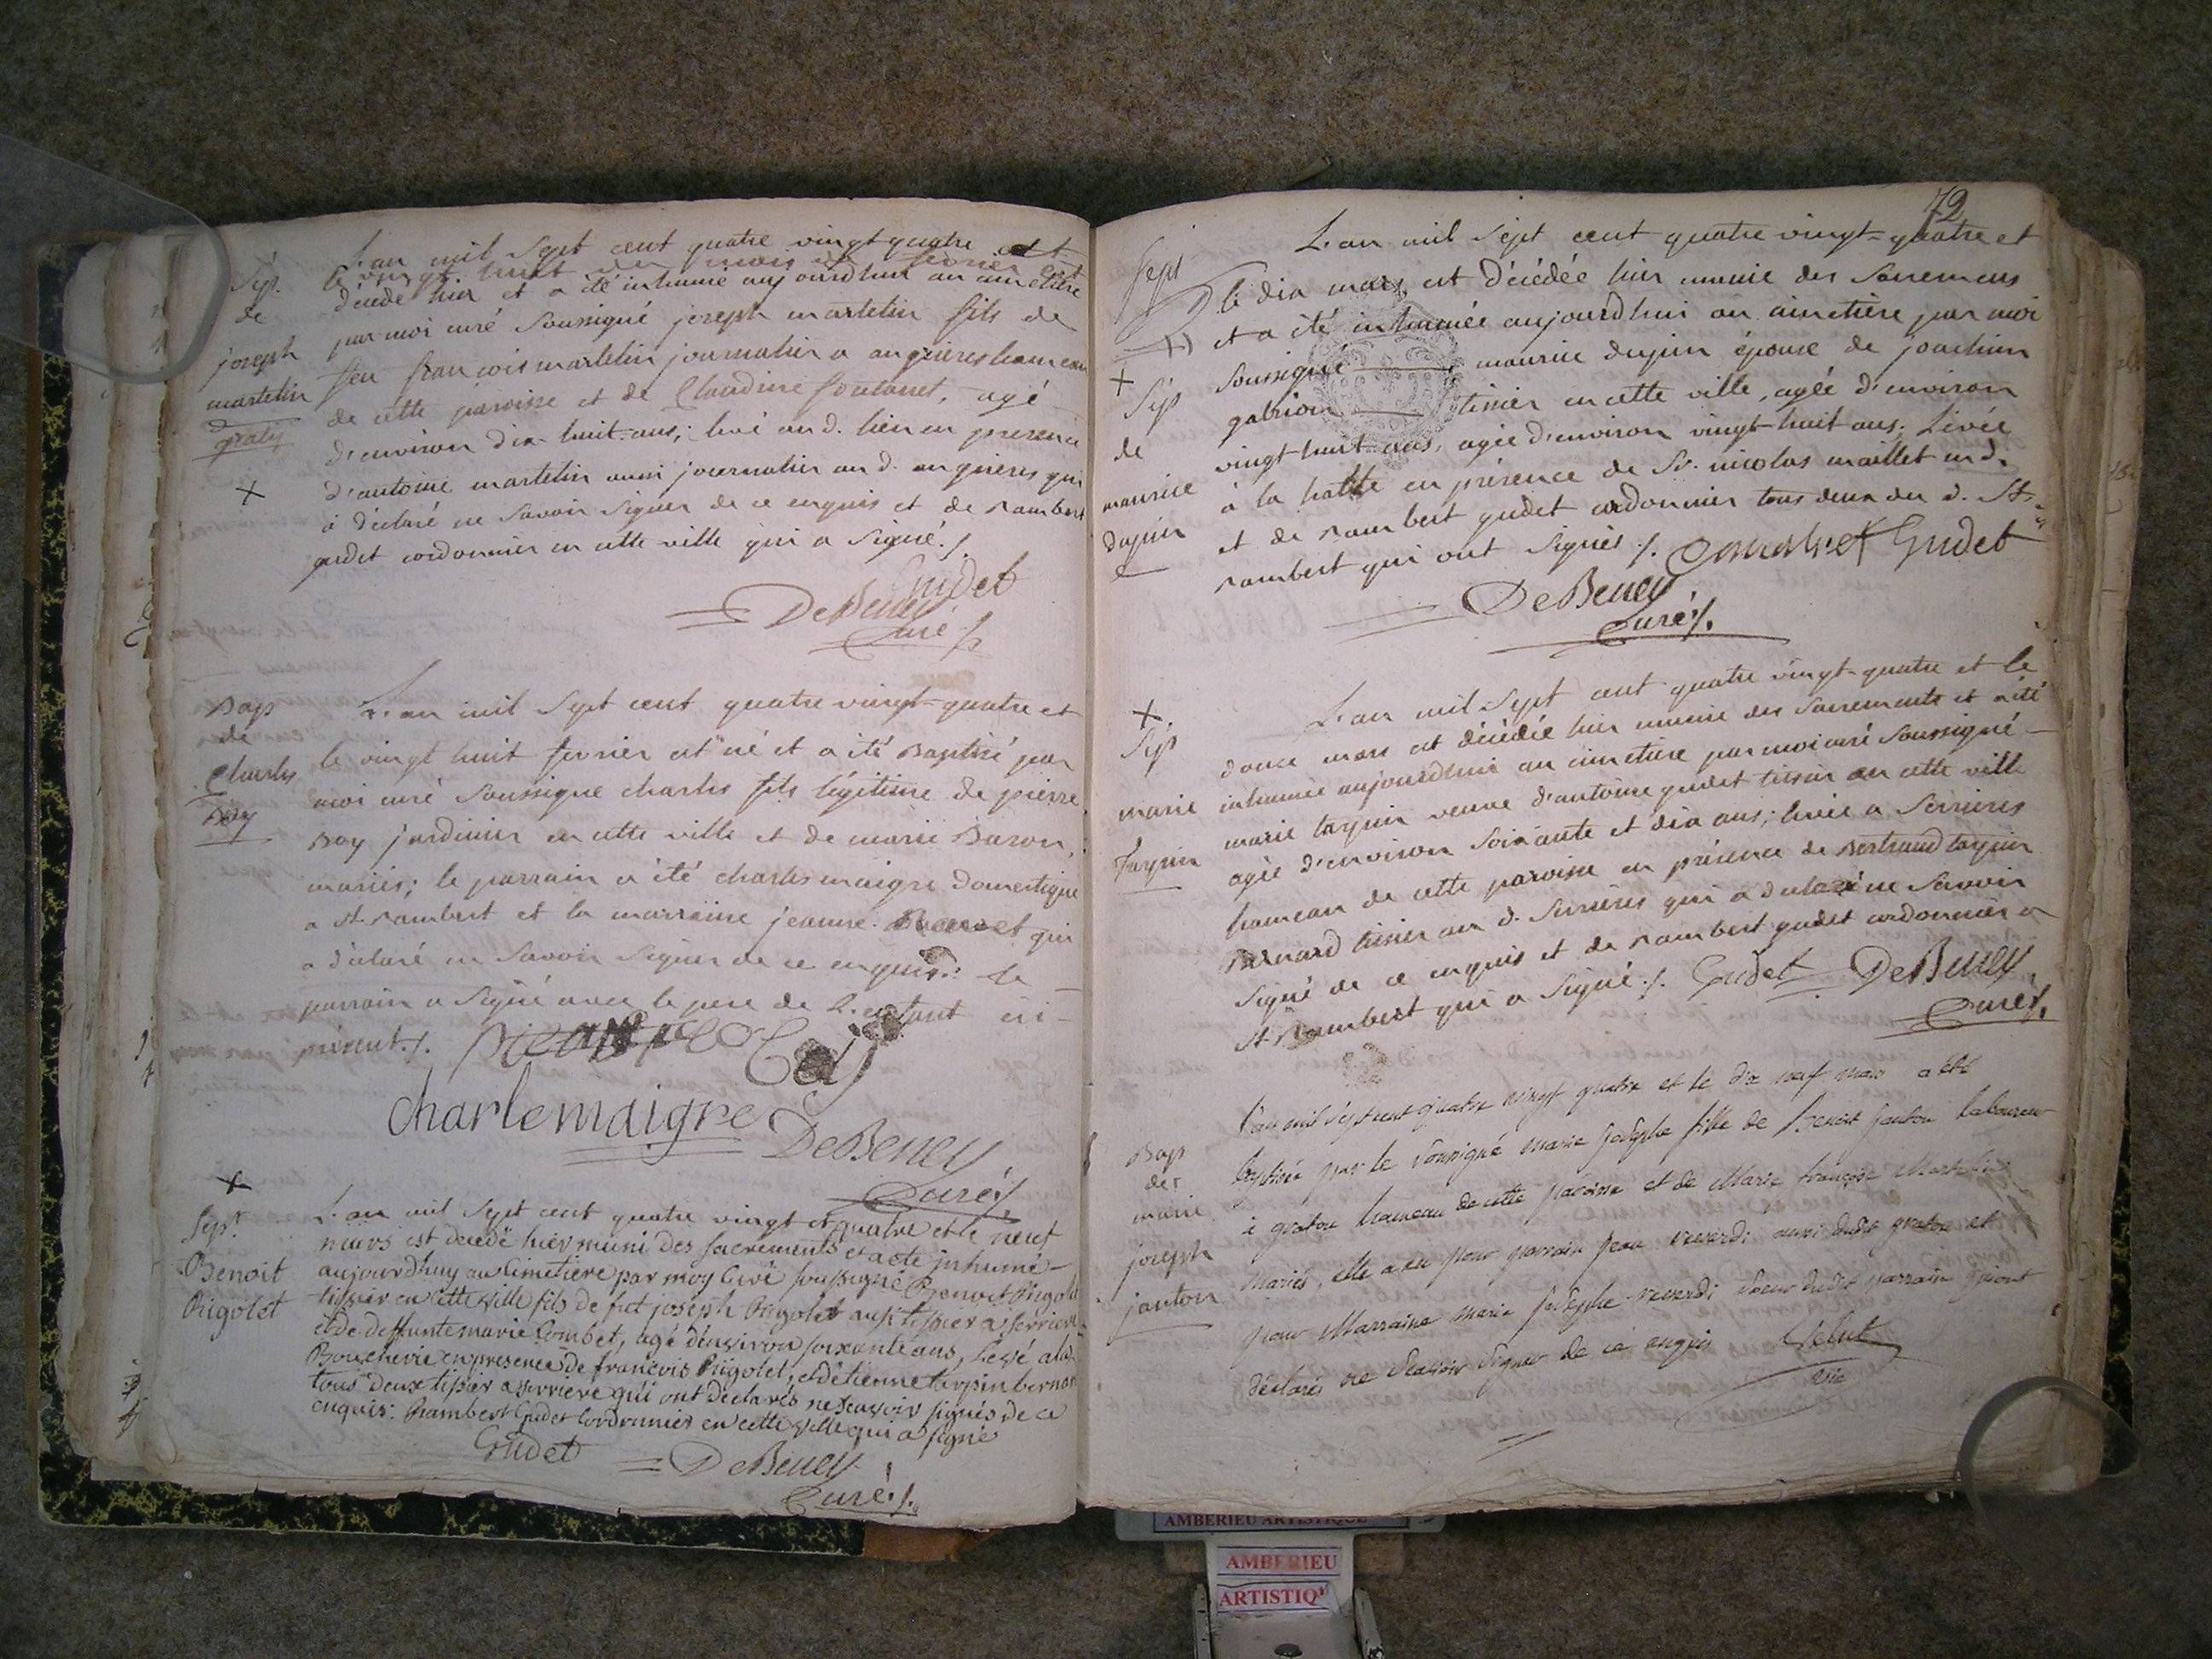 Sep.
de
joseph
martelin
gratis
L'an mil Sept cent quatre vingt quatre et
le vingt huit du mois de fevrier est
décédé hier et a été inhumé aujourdhui au cimetière
par moi curé Soussigné joseph martelin fils de
feu francois martelin journalier a angrieres hameau
de cette paroisse et de Claudine agé
d'environ dix huit ans; levé aud. lieu en presence
d'antoine martelin aussi journalier aud. angrieres qui
a déclaré ne Savoir Signer de ce enquis et de rambert
gudet cordonnier en cette ville qui a Signé ./.
Gudet
DeBeney
Curé ./.
Bap
de
Charles
Bay
L'an mil Sept cent quatre vingt-quatre et
le vingt huit fevrier est né et a été Baptisé par
moi curé Soussigné charles fils légitime de pierre
Bay jardinier en cette ville et de marie Baron,
mariés; le parrain a été charles maigre domestique
a st. rambert et la marraine jeanne qui
a déclaré ne Savoir Signer de ce enquis: le
parrain a Signé avec le pere de L'enfant ici-
présent ./.
Bay
charlemaigre
DeBeney
Curé ./.
Sep.r
Benoit
Rigolet
L'an mil Sept cent quatre vingt et quatre et le neuf
mars est decedé hier muni des Sacrements et a eté inhumé
aujourdhuy au Cimetiere par moy Curé soussigné Benoit Rigolet
tissier en cette ville fils de fut joseph Rigolet aussi tissier a serriere
et de deffunte marie Combet, agé d'environ soixante ans, Levé a la
Boucherie en presence de francois Rigolet, et d'etienne tarpin bernard
tous deux tissier a serriere qui ont declarés ne Scavoir signés de ce
enquis: Rambert Gudet Cordonnier en cette ville qui a signé
Gudet
DeBeney
Curé ./.
72
Sept
Sep
de
maurice
Dupin
L'an mil Sept cent quatre vingt-quatre et
le dix mars est Décédée hier munie des Sacremens
et a été inhumée aujourd'hui au cimetière par moi
Soussigné maurice dupin épouse de joachim
gabrion tissier en cette ville, agée d'environ
vingt-huit ans, agée d'environ vingt-huit ans; Livée
à la halle en présence de Sr. nicolas maillet md.
et de rambert gudet cordonnier tous deux du d. St.
rambert qui ont Signés ./.
Gudet
DeBeney
Curé ./.
Sep
marie
Tarpin
L'an mil Sept cent quatre vingt-quatre et le
douze mars est décédée hier munie des Sacrements et a été
inhumée aujourdhui au cimetière par moi curé Soussigné
marie tarpin veuve d'antoine gudet tissier en cette ville
agée d'environ Soixante et dix ans; levée a Serrieres
hameau de cette paroisse en présence de Bertrand tarpin
Bernard tissier au d. Serrieres qui a declaré ne Savoir
Signé de ce enquis et de rambert gudet cordonnier a
st. Rambert qui a Signé ./. Gudet DeBeney
Curé ./.
Bap
de
marie
joseph
janton
L'an mil sept cent quatre vingt quatre et le dix neuf mars a eté
baptisée par le soussigné marie josephe fille de Benoit janton laboureur
à gratou hameau de cette paroisse et de Marie françoise Martelin
mariés, elle a eu pour parrain jean reverdi aussi dudit gratou et
pour Marraine marie josephe reverdi soeur dudit parrain qui ont
déclarés ne Scavoir Signer de ce enquis Velut
vic
AMBERIEU ARTISTIQUE
AMBERIEU
ARTISTIQ